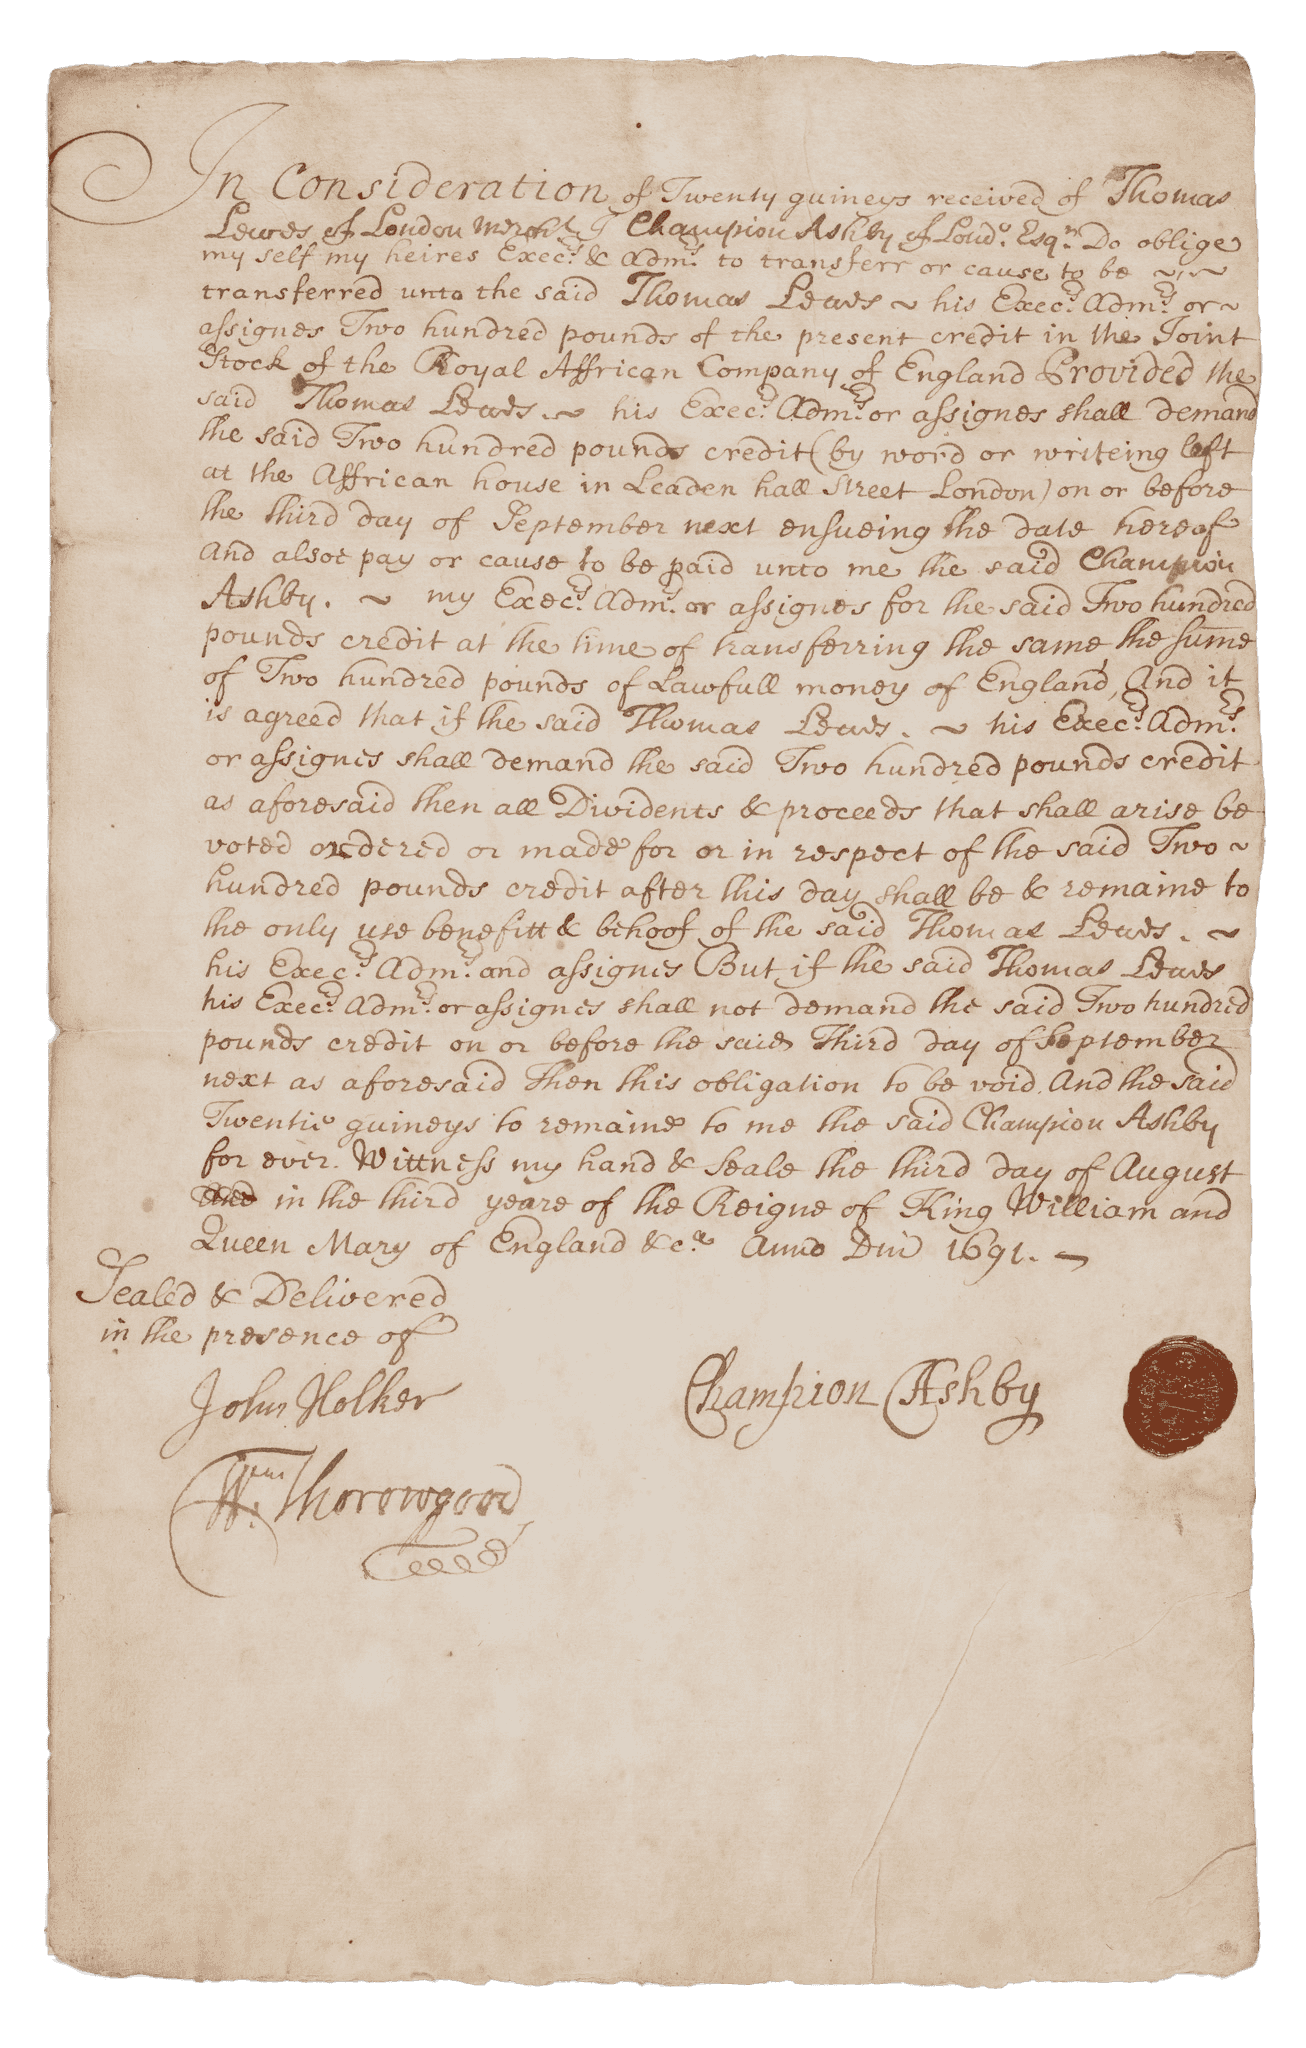 In Consideration of Twenty guineys received of Thomas
Lewes of London Mercht I Champion Ashby of Londo. Esqr. Do oblige
my self my heires Execrs. & Admrs. to transferr or cause to be ~ ~
transferred unto the said Thomas Lewes ~ his Execrs. Admrs. or ~
assignes Two hundred pounds of the present credit in the Joint
Stock of the Royal Affrican Company of England Provided the
said Thomas Lewes. ~ his Execrs. Admrs. or assignes shall demand
the said Two hundred pounds credit (by word or writeing left
at the Affrican house in Leaden hall Street London) on or before
the third day of September next ensueing the date hereof
And alsoe pay or cause to be paid unto me the said Champion
Ashby. ~ my Execrs. Admrs. or assignes for the said Two hundred
pounds credit at the time of transferring the same, the sume
of Two hundred pounds of Lawfull money of England, And it
is agreed that if the said Thomas Lewes. ~ his Execrs. Admrs.
or assignes shall demand the said Two hundred pounds credit
as aforesaid then all Dividents & proceeds that shall arise be
voted ordered or made for or in respect of the said Two ~
hundred pounds credit after this day shall be & remaine to
the only use benefitt & behoof of the said Thomas Lewes. ~
his Execrs. Admrs. and assignes But if the said Thomas Lewes
his Execrs. Admrs. or assignes shall not demand the said Two hundred
pounds credit on or before the said Third day of September
next as aforesaid Then this obligation to be void. And the said
Twentie guineys to remaine to me the said Champion Ashby
for ever. Wittness my hand & seale the third day of August
in the third yeare of the Reigne of King William and
Queen Mary of England &ca. Anno Dni 1691. ~
Sealed & Delivered
in the presence of
John Holker
Champion Ashby
Wm. Thorowgood